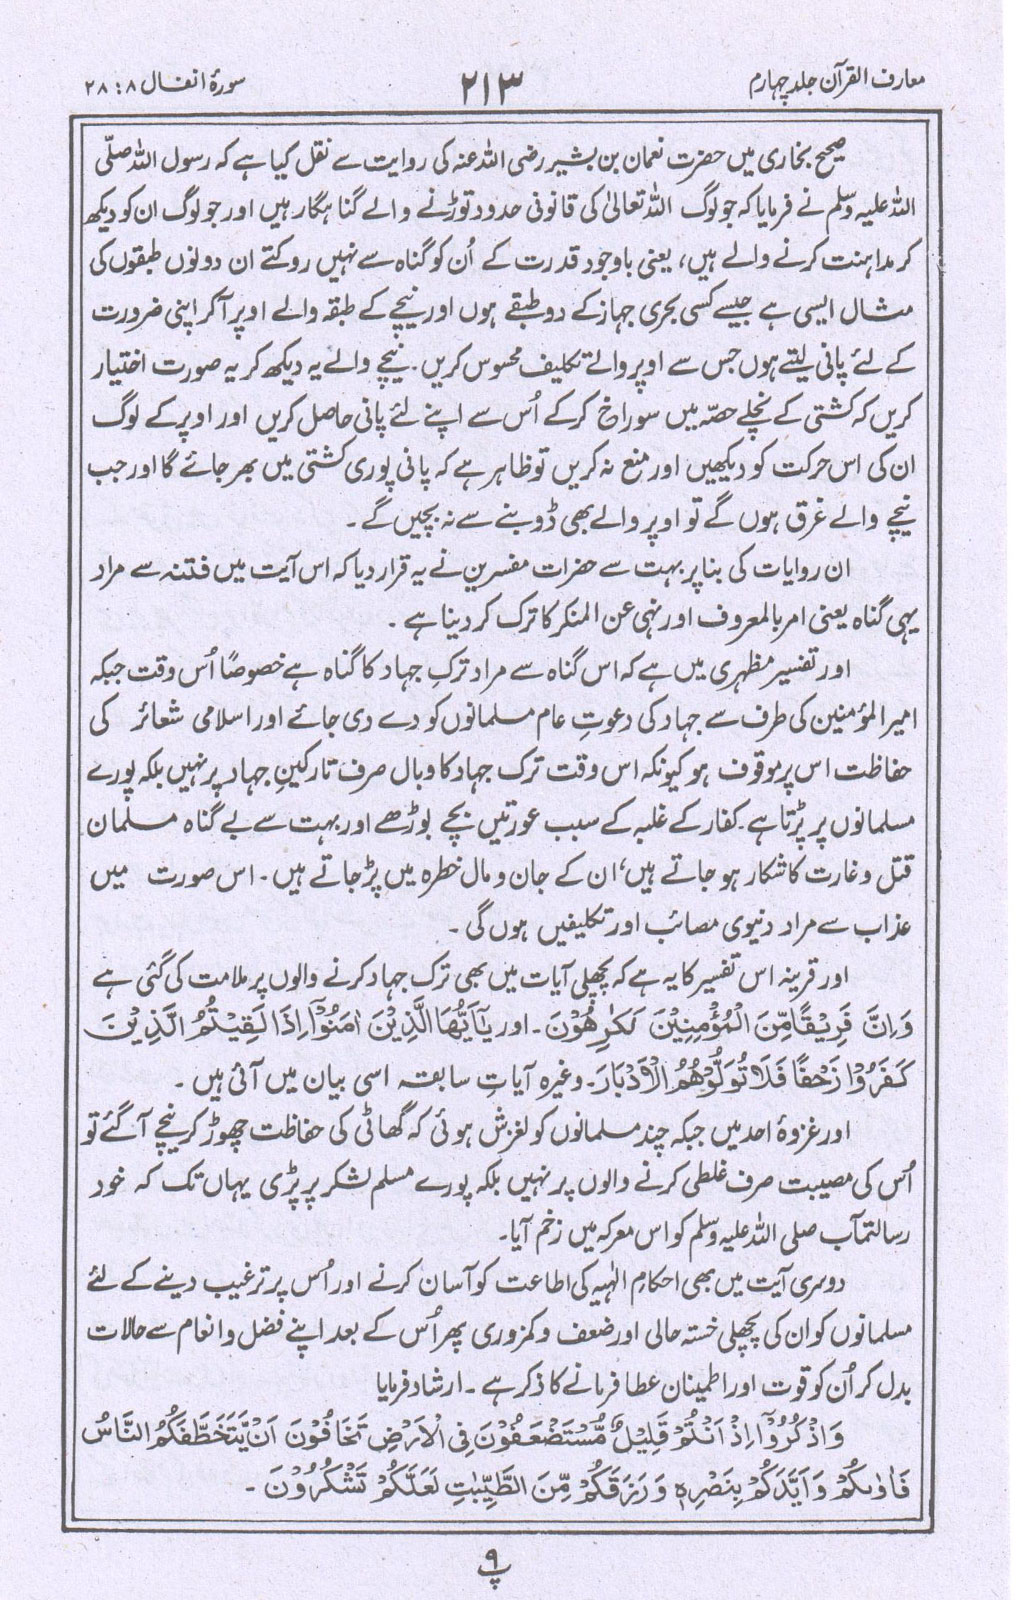 معارف القرآن جلد چہارم
۲۱۳
سورۂ انفال ۸ : ۲۸
صحیح بخاری میں حضرت نعمان بن بشیر رضی اللہ عنہ کی روایت سے نقل کیا ہے کہ رسول اللہ صلّی
اللہ علیہ وسلم نے فرمایا کہ جو لوگ اللہ تعالیٰ کی قانونی حدود توڑنے والے گناہگار ہیں اور جو لوگ ان کو دیکھ
کر مداہنت کرنے والے ہیں، یعنی باوجود قدرت کے اُن کو گناہ سے نہیں روکتے ان دونوں طبقوں کی
مثال ایسی ہے جیسے کسی بحری جہاز کے دو طبقے ہوں اور نیچے کے طبقہ والے اوپر آکر اپنی ضرورت
کے لئے پانی لیتے ہوں جس سے اوپر والے تکلیف محسوس کریں. نیچے والے یہ دیکھ کر یہ صورت اختیار
کریں کہ کشتی کے نچلے حصّہ میں سوراخ کرکے اُس سے اپنے لئے پانی حاصل کریں اور اوپر کے لوگ
ان کی اس حرکت کو دیکھیں اور منع نہ کریں تو ظاہر ہے کہ پانی پوری کشتی میں بھر جائے گا اور جب
نیچے والے غرق ہوں گے تو اوپر والے بھی ڈوبنے سے نہ بچیں گے۔
ان روایات کی بنا پر بہت سے حضرات مفسرین نے یہ قرار دیا کہ اس آیت میں فتنہ سے مراد
یہی گناہ یعنی امر بالمعروف اور نہی عن المنکر کا ترک کر دینا ہے۔
اور تفسیر مظہری میں ہے کہ اس گناہ سے مراد ترکِ جہاد کا گناہ ہے خصوصًا اُس وقت جبکہ
امیر المؤمنین کی طرف سے جہاد کی دعوتِ عام مسلمانوں کو دے دی جائے اور اسلامی شعائر کی
حفاظت اس پر موقوف ہو کیونکہ اس وقت ترک جہاد کا وبال صرف تارکینِ جہاد پر نہیں بلکہ پورے
مسلمانوں پر پڑتا ہے۔ کفار کے غلبہ کے سبب عورتیں بچے بوڑھے اور بہت سے بے گناہ مسلمان
قتل و غارت کا شکار ہو جاتے ہیں، ان کے جان و مال خطرہ میں پڑ جاتے ہیں۔ اس صورت میں
عذاب سے مراد دنیوی مصائب اور تکلیفیں ہوں گی۔
اور قرینہ اس تفسیر کا یہ ہے کہ پچھلی آیات میں بھی ترک جہاد کرنے والوں پر ملامت کی گئی ہے
وَاِنَّ فَرِیْقًا مِّنَ الْمُؤْمِنِیْنَ لَکٰرِھُوْنَ۔ اور یٰٓاَیُّھَا الَّذِیْنَ اٰمَنُوْٓا اِذَا لَقِیْتُمُ الَّذِیْنَ
کَفَرُوْا زَحْفًا فَلَا تُوَلُّوْھُمُ الْاَدْبَارَ۔ وغیرہ آیاتِ سابقہ اسی بیان میں آئی ہیں۔
اور غزوۂ احد میں جبکہ چند مسلمانوں کو لغزش ہوئی کہ گھاٹی کی حفاظت چھوڑ کر نیچے آگئے تو
اُس کی مصیبت صرف غلطی کرنے والوں پر نہیں بلکہ پورے مسلم لشکر پر پڑی یہاں تک کہ خود
رسالتمآب صلی اللہ علیہ وسلم کو اس معرکہ میں زخم آیا۔
دوسری آیت میں بھی احکامِ الٰہیہ کی اطاعت کو آسان کرنے اور اُس پر ترغیب دینے کے لئے
مسلمانوں کو ان کی پچھلی خستہ حالی اور ضعف و کمزوری پھر اُس کے بعد اپنے فضل و انعام سے حالات
بدل کر اُن کو قوت اور اطمینان عطا فرمانے کا ذکر ہے۔ ارشاد فرمایا
وَاذْکُرُوْٓا اِذْ اَنْتُمْ قَلِیْلٌ مُّسْتَضْعَفُوْنَ فِی الْاَرْضِ تَخَافُوْنَ اَنْ یَّتَخَطَّفَکُمُ النَّاسُ
فَاٰوٰىکُمْ وَاَیَّدَکُمْ بِنَصْرِہٖ وَرَزَقَکُمْ مِّنَ الطَّیِّبٰتِ لَعَلَّکُمْ تَشْکُرُوْنَ۔
پ ۹